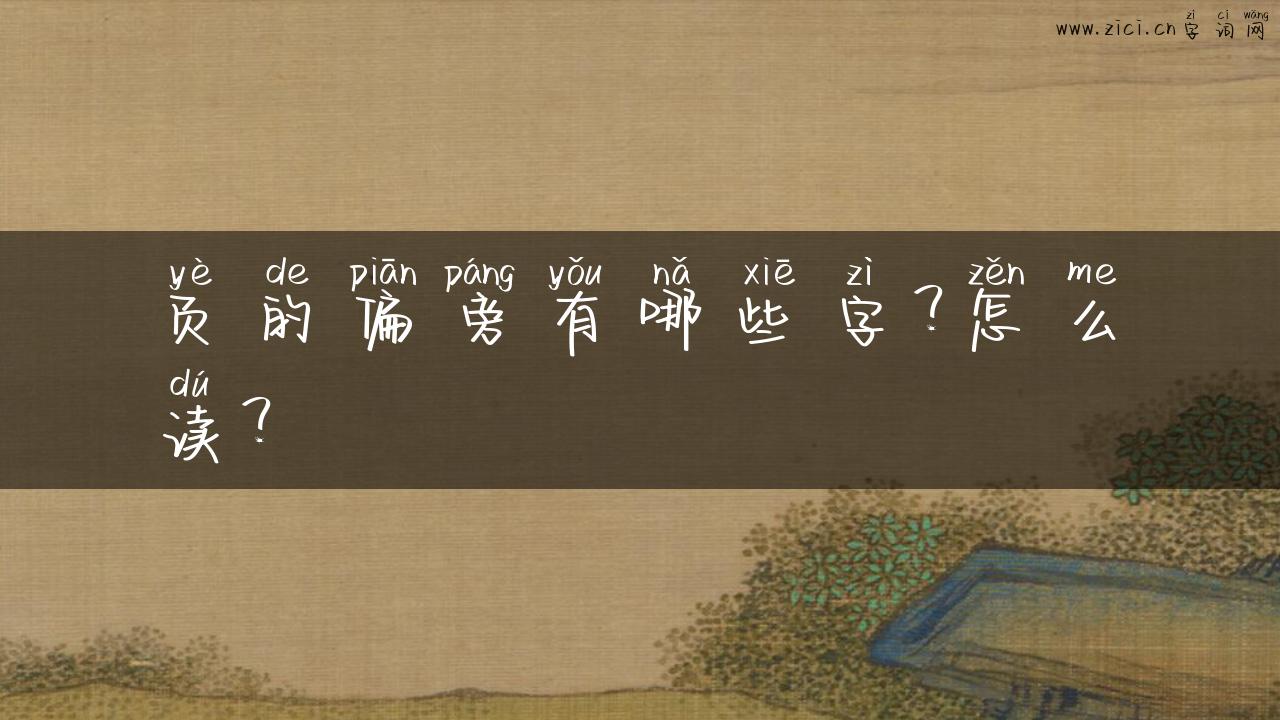 zì cí wǎng
www.zici.cn字词网
yè de piān páng yǒu nǎ xiē zì zěn me
页的偏旁有哪些字？怎么
dú
读？